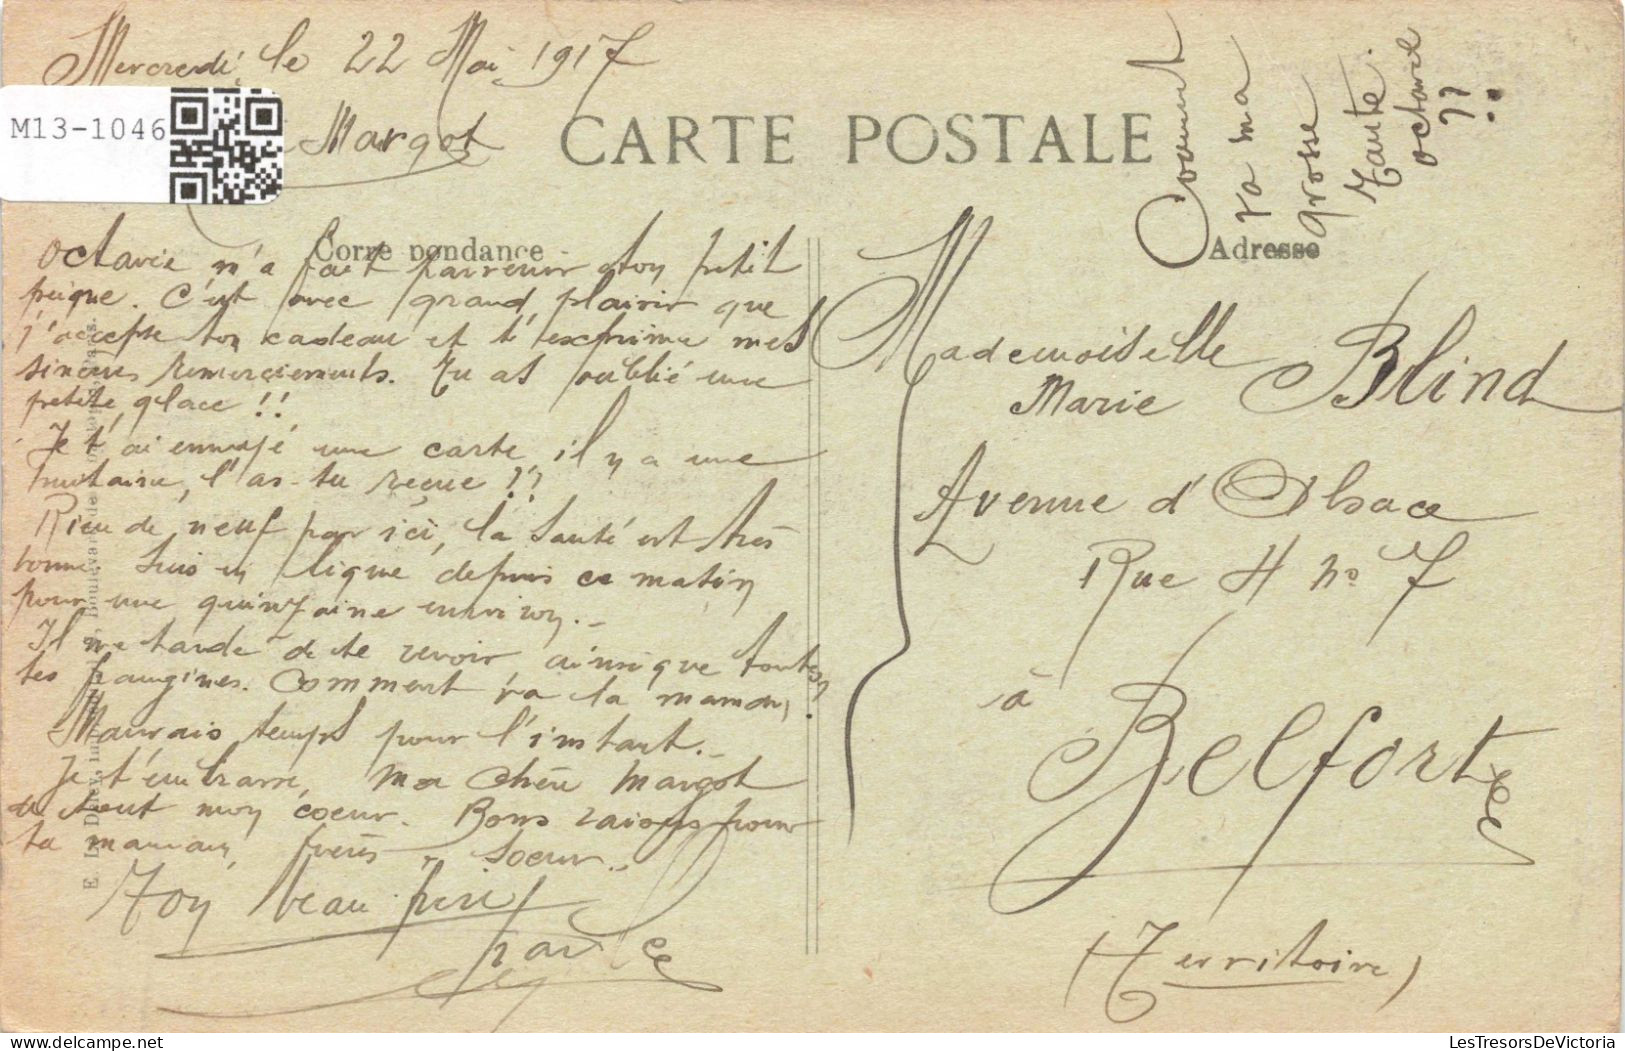 Mercredi, le 22 Mai 1917
M13-1046
Margot
CARTE POSTALE
Comment
va ma
grosse
Tante
octavie
??
Correspondance
Adresse
octavie m'a fait parvenir ton petit
peigne. C'est avec grand plaisir que
j'accepte ton cadeau et t'exprime mes
sincères remerciements. Tu as oublié une
petite glace !!
Je t'ai envoyé une carte, il y a une
huitaine, l'as-tu reçue ??
Rien de neuf par ici, la santé est très
bonne. Suis en ligne depuis ce matin
pour une quinzaine environ.
Il me tarde de te revoir ainsi que toutes
tes frangines. Comment va ta maman?
Mauvais temps pour l'instant.
Je t'embrasse, ma chère Margot
de tout mon coeur. Bons baisers pour
ta maman, frères, soeur.
Ton beau frère
Mademoiselle
Marie Blind
Avenue d'Alsace
Rue H no 7
à
Belfort
(Territoire)
LesTresorsDeVictoria